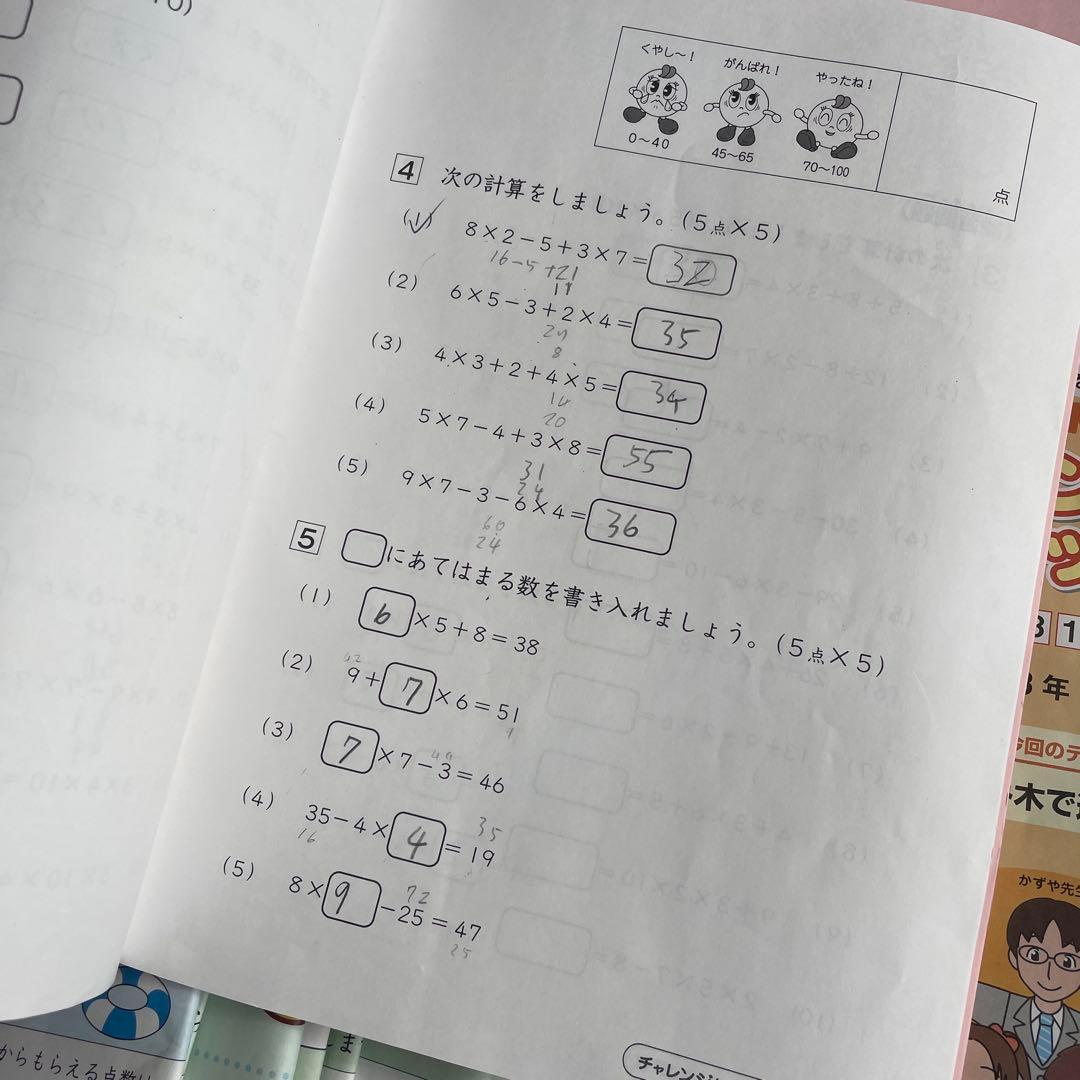 くやし〜！ がんばれ！ やったね！
0〜40 45〜65 70〜100
点
4 次の計算をしましょう。(5点×5)
(1) 8×2−5+3×7=32
16−5+21
11
(2) 6×5−3+2×4=35
8
(3) 4×3+2+4×5=34
14
20
(4) 5×7−4+3×8=55
31
24
(5) 9×7−3−6×4=36
60
24
5 □にあてはまる数を書き入れましょう。(5点×5)
(1) 6×5+8=38
42
(2) 9+7×6=51
9
49
(3) 7×7−3=46
35
(4) 35−4×4=19
16
72
(5) 8×9−25=47
25
チャレンジ
3年
今回のテ
木で
かずや先生
からもらえる点数は
ま